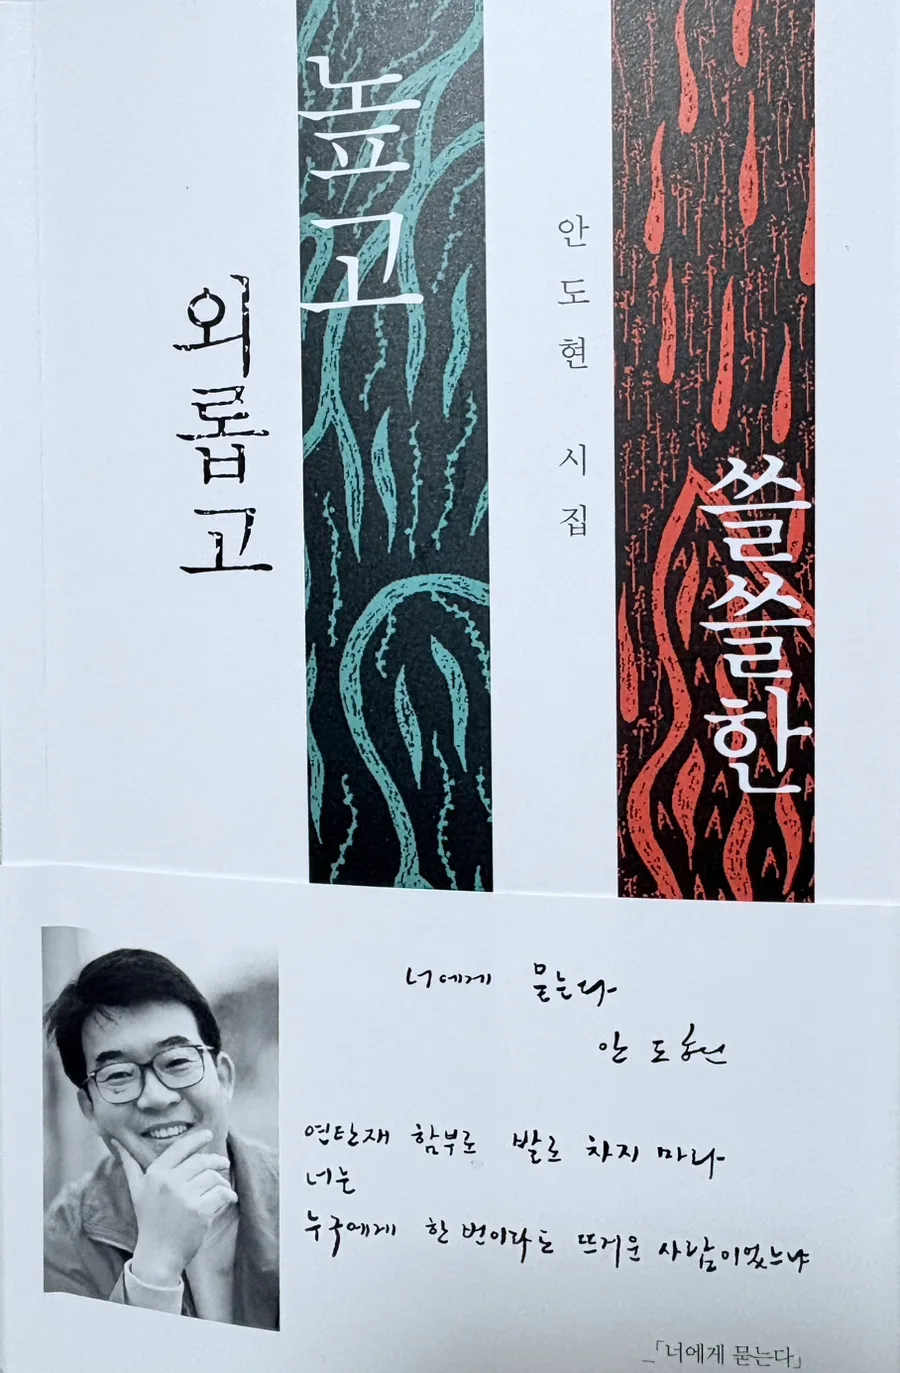 외롭고
높고
쓸쓸한
안도현 시집
너에게 묻는다
안도현
연탄재 함부로 발로 차지 마라
너는
누구에게 한 번이라도 뜨거운 사람이었느냐
_「너에게 묻는다」